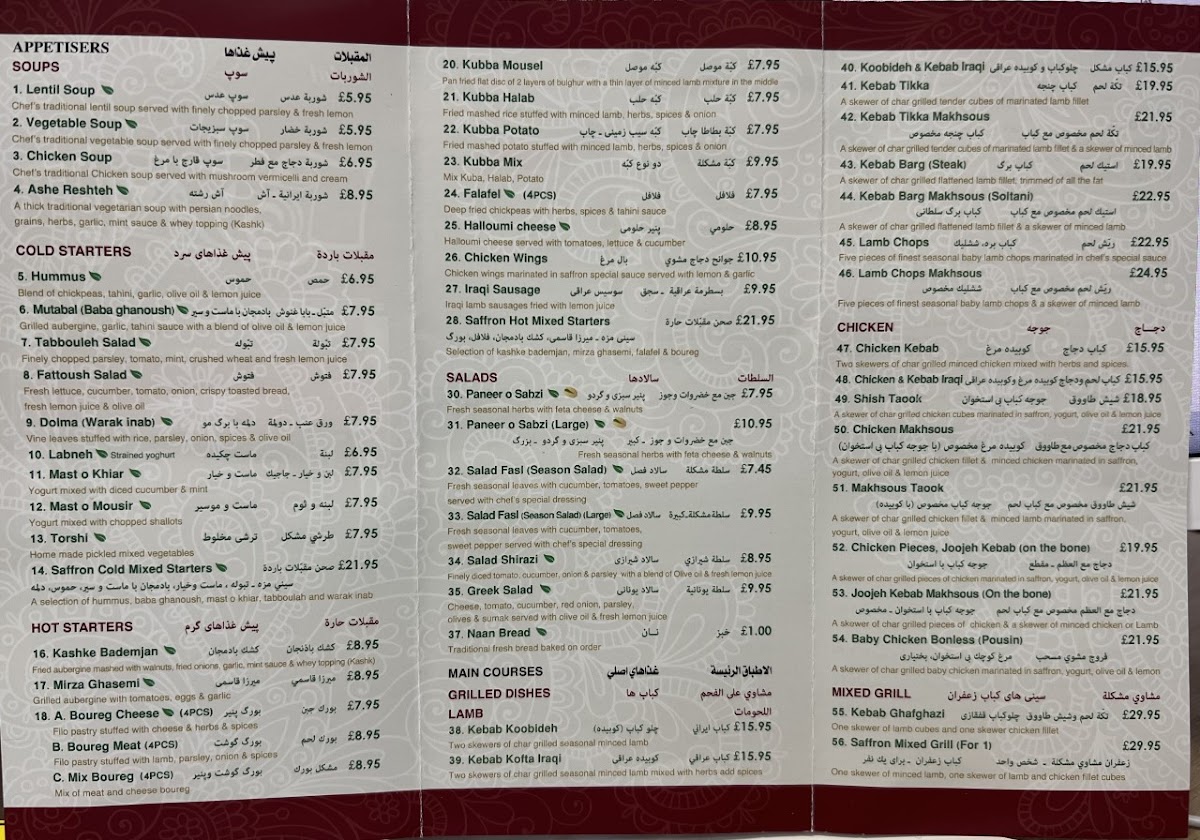 APPETISERS پیش غذاها المقبلات
SOUPS سوپ الشوربات
1. Lentil Soup سوپ عدس شوربة عدس £5.95
Chef's traditional lentil soup served with finely chopped parsley & fresh lemon
2. Vegetable Soup سوپ سبزیجات شوربة خضار £5.95
Chef's traditional vegetable soup served with finely chopped parsley & fresh lemon
3. Chicken Soup سوپ قارچ با مرغ شوربة دجاج مع فطر £6.95
Chef's traditional Chicken soup served with mushroom vermicelli and cream
4. Ashe Reshteh آش رشته شوربة ايرانية ـ آش £8.95
A thick traditional vegetarian soup with persian noodles,
grains, herbs, garlic, mint sauce & whey topping (Kashk)
COLD STARTERS پیش غذاهای سرد مقبلات باردة
5. Hummus حموس حمص £6.95
Blend of chickpeas, tahini, garlic, olive oil & lemon juice
6. Mutabal (Baba ghanoush) متبّل ـ بابا غنوش بادمجان با ماست و سیر £7.95
Grilled aubergine, garlic, tahini sauce with a blend of olive oil & lemon juice
7. Tabbouleh Salad تبوله تبّولة £7.95
Finely chopped parsley, tomato, mint, crushed wheat and fresh lemon juice
8. Fattoush Salad فتوش فتوش £7.95
Fresh lettuce, cucumber, tomato, onion, crispy toasted bread,
fresh lemon juice & olive oil
9. Dolma (Warak inab) دلمه با برگ مو ورق عنب ـ دولمة £7.95
Vine leaves stuffed with rice, parsley, onion, spices & olive oil
10. Labneh Strained yoghurt ماست چکیده لبنة £6.95
11. Mast o Khiar ماست و خیار لبن و خيار ـ جاجيك £7.95
Yogurt mixed with diced cucumber & mint
12. Mast o Mousir ماست و موسیر لبنه و ثوم £7.95
Yogurt mixed with chopped shallots
13. Torshi ترشی مخلوط طرشي مشكل £7.95
Home made pickled mixed vegetables
14. Saffron Cold Mixed Starters صحن مقبّلات باردة £21.95
سینی مزه ـ تبوله ، ماست وخیار، بادمجان با ماست و سیر، حموس، دلمه
A selection of hummus, baba ghanoush, mast o khiar, tabboulah and warak inab
HOT STARTERS پیش غذاهای گرم مقبلات حارة
16. Kashke Bademjan کشک بادمجان كشك باذنجان £8.95
Fried aubergine mashed with walnuts, fried onions, garlic, mint sauce & whey topping (Kashk)
17. Mirza Ghasemi میرزا قاسمی ميرزا قاسمي £8.95
Grilled aubergine with tomatoes, eggs & garlic
18. A. Boureg Cheese (4PCS) بورگ پنیر بورك جبن £7.95
Filo pastry stuffed with cheese & herbs & spices
B. Boureg Meat (4PCS) بورگ گوشت بورك لحم £8.95
Filo pastry stuffed with lamb, parsley, onion & spices
C. Mix Boureg (4PCS) بورگ گوشت وپنیر مشكل بورك £8.95
Mix of meat and cheese boureg
20. Kubba Mousel کبّه موصل كبّة موصل £7.95
Pan fried flat disc of 2 layers of bulghur with a thin layer of minced lamb mixture in the middle
21. Kubba Halab کبّه حلب كبّة حلب £7.95
Fried mashed rice stuffed with minced lamb, herbs, spices & onion
22. Kubba Potato کبّه سیب زمینی ـ چاپ كبّة بطاطا چاب £7.95
Fried mashed potato stuffed with minced lamb, herbs, spices & onion
23. Kubba Mix دو نوع کبّه كبّة مشكلة £9.95
Mix Kuba, Halab, Potato
24. Falafel (4PCS) فلافل فلافل £7.95
Deep fried chickpeas with herbs, spices & tahini sauce
25. Halloumi cheese پنیر حلومی حلومي £8.95
Halloumi cheese served with tomatoes, lettuce & cucumber
26. Chicken Wings بال مرغ جوانح دجاج مشوي £10.95
Chicken wings marinated in saffron special sauce served with lemon & garlic
27. Iraqi Sausage سوسیس عراقی بسطرمة عراقية ـ سجق £9.95
Iraqi lamb sausages fried with lemon juice
28. Saffron Hot Mixed Starters صحن مقبّلات حارة £21.95
سینی مزه ـ میرزا قاسمی، کشك بادمجان، فلافل، بورک
Selection of kashke bademjan, mirza ghasemi, falafel & boureg
SALADS سالادها السلطات
30. Paneer o Sabzi پنیر سبزی و گردو جبن مع خضروات وجوز £7.95
Fresh seasonal herbs with feta cheese & walnuts
31. Paneer o Sabzi (Large) £10.95
پنیر سبزی و گردو ـ بزرگ جبن مع خضروات و جوز ـ كبير
Fresh seasonal herbs with feta cheese & walnuts
32. Salad Fasl (Season Salad) سالاد فصل سلطة مشكلة £7.45
Fresh seasonal leaves with cucumber, tomatoes, sweet pepper
served with chef's special dressing
33. Salad Fasl (Season Salad) (Large) سالاد فصل سلطة مشكلة ـ كبيرة £9.95
Fresh seasonal leaves with cucumber, tomatoes,
sweet pepper served with chef's special dressing
34. Salad Shirazi سالاد شیرازی سلطة شيرازي £8.95
Finely diced tomato, cucumber, onion & parsley with a blend of Olive oil & fresh lemon juice
35. Greek Salad سالاد یونانی سلطة يونانية £9.95
Cheese, tomato, cucumber, red onion, parsley,
olives & sumak served with olive oil & fresh lemon juice
37. Naan Bread نـان خبز £1.00
Traditional fresh bread baked on order
MAIN COURSES غذاهای اصلی الاطباق الرئيسة
GRILLED DISHES کباب ها مشاوي على الفحم
LAMB اللحومات
38. Kebab Koobideh چلو کباب (کوبیده) كباب ايراني £15.95
Two skewers of char grilled seasonal minced lamb
39. Kebab Kofta Iraqi کوبیده عراقی كباب عراقي £15.95
Two skewers of char grilled seasonal minced lamb mixed with herbs add spices
40. Koobideh & Kebab Iraqi چلوکباب و کوبیده عراقی كباب مشكل £15.95
41. Kebab Tikka کباب چنجه تكّة لحم £19.95
A skewer of char grilled tender cubes of marinated lamb fillet
42. Kebab Tikka Makhsous £21.95
کباب چنجه مخصوص تكّة لحم مخصوص مع كباب
A skewer of char grilled tender cubes of marinated lamb fillet & a skewer of minced lamb
43. Kebab Barg (Steak) کباب برگ استيك لحم £19.95
A skewer of char grilled flattened lamb fillet, trimmed of all the fat
44. Kebab Barg Makhsous (Soltani) £22.95
کباب برگ سلطانی استيك لحم مخصوص مع كباب
A skewer of char grilled flattened lamb fillet & a skewer of minced lamb
45. Lamb Chops کباب بره، ششلیک ريّش لحم £22.95
Five pieces of finest seasonal baby lamb chops marinated in chef's special sauce
46. Lamb Chops Makhsous £24.95
ششلیک مخصوص ريّش لحم مخصوص مع كباب
Five pieces of finest seasonal baby lamb chops & a skewer of minced lamb
CHICKEN جوجه دجـاج
47. Chicken Kebab کوبیده مرغ كباب دجاج £15.95
Two skewers of char grilled minced chicken mixed with herbs and spices.
48. Chicken & Kebab Iraqi کباب لحم ودجاج کوبیده مرغ وکوبیده عراقی £15.95
49. Shish Taook جوجه کباب بی استخوان شيش طاووق £18.95
A skewer of char grilled chicken cubes marinated in saffron, yogurt, olive oil & lemon juice
50. Chicken Makhsous £21.95
کوبیده مرغ مخصوص (با جوجه کباب بی استخوان) كباب دجاج مخصوص مع طاووق
A skewer of char grilled chicken fillet & minced chicken marinated in saffron,
yogurt, olive oil & lemon juice
51. Makhsous Taook £21.95
جوجه کباب مخصوص (با کوبیده) شيش طاووق مخصوص مع كباب لحم
A skewer of char grilled chicken fillet & minced lamb marinated in saffron,
yogurt, olive oil & lemon juice
52. Chicken Pieces, Joojeh Kebab (on the bone) £19.95
جوجه کباب با استخوان دجاج مع العظم ـ مقطع
A skewer of char grilled pieces of chicken marinated in saffron, yogurt, olive oil & lemon juice
53. Joojeh Kebab Makhsous (On the bone) £21.95
جوجه کباب با استخوان ـ مخصوص دجاج مع العظم مخصوص مع كباب لحم
A skewer of char grilled pieces of chicken & a skewer of minced chicken or Lamb
54. Baby Chicken Bonless (Pousin) £21.95
مرغ کوچک بی استخوان، بختیاری فروج مشوي مسحب
A skewer of char grilled baby chicken marinated in saffron, yogurt, olive oil & lemon
MIXED GRILL سینی های کباب زعفران مشاوي مشكلة
55. Kebab Ghafghazi چلوکباب قفقازی تكّة لحم وشيش طاووق £29.95
One skewer of lamb cubes and one skewer chicken fillet
56. Saffron Mixed Grill (For 1) £29.95
کباب زعفران ـ برای یک نفر زعفران مشاوي مشكلة ـ شخص واحد
One skewer of minced lamb, one skewer of lamb and chicken fillet cubes